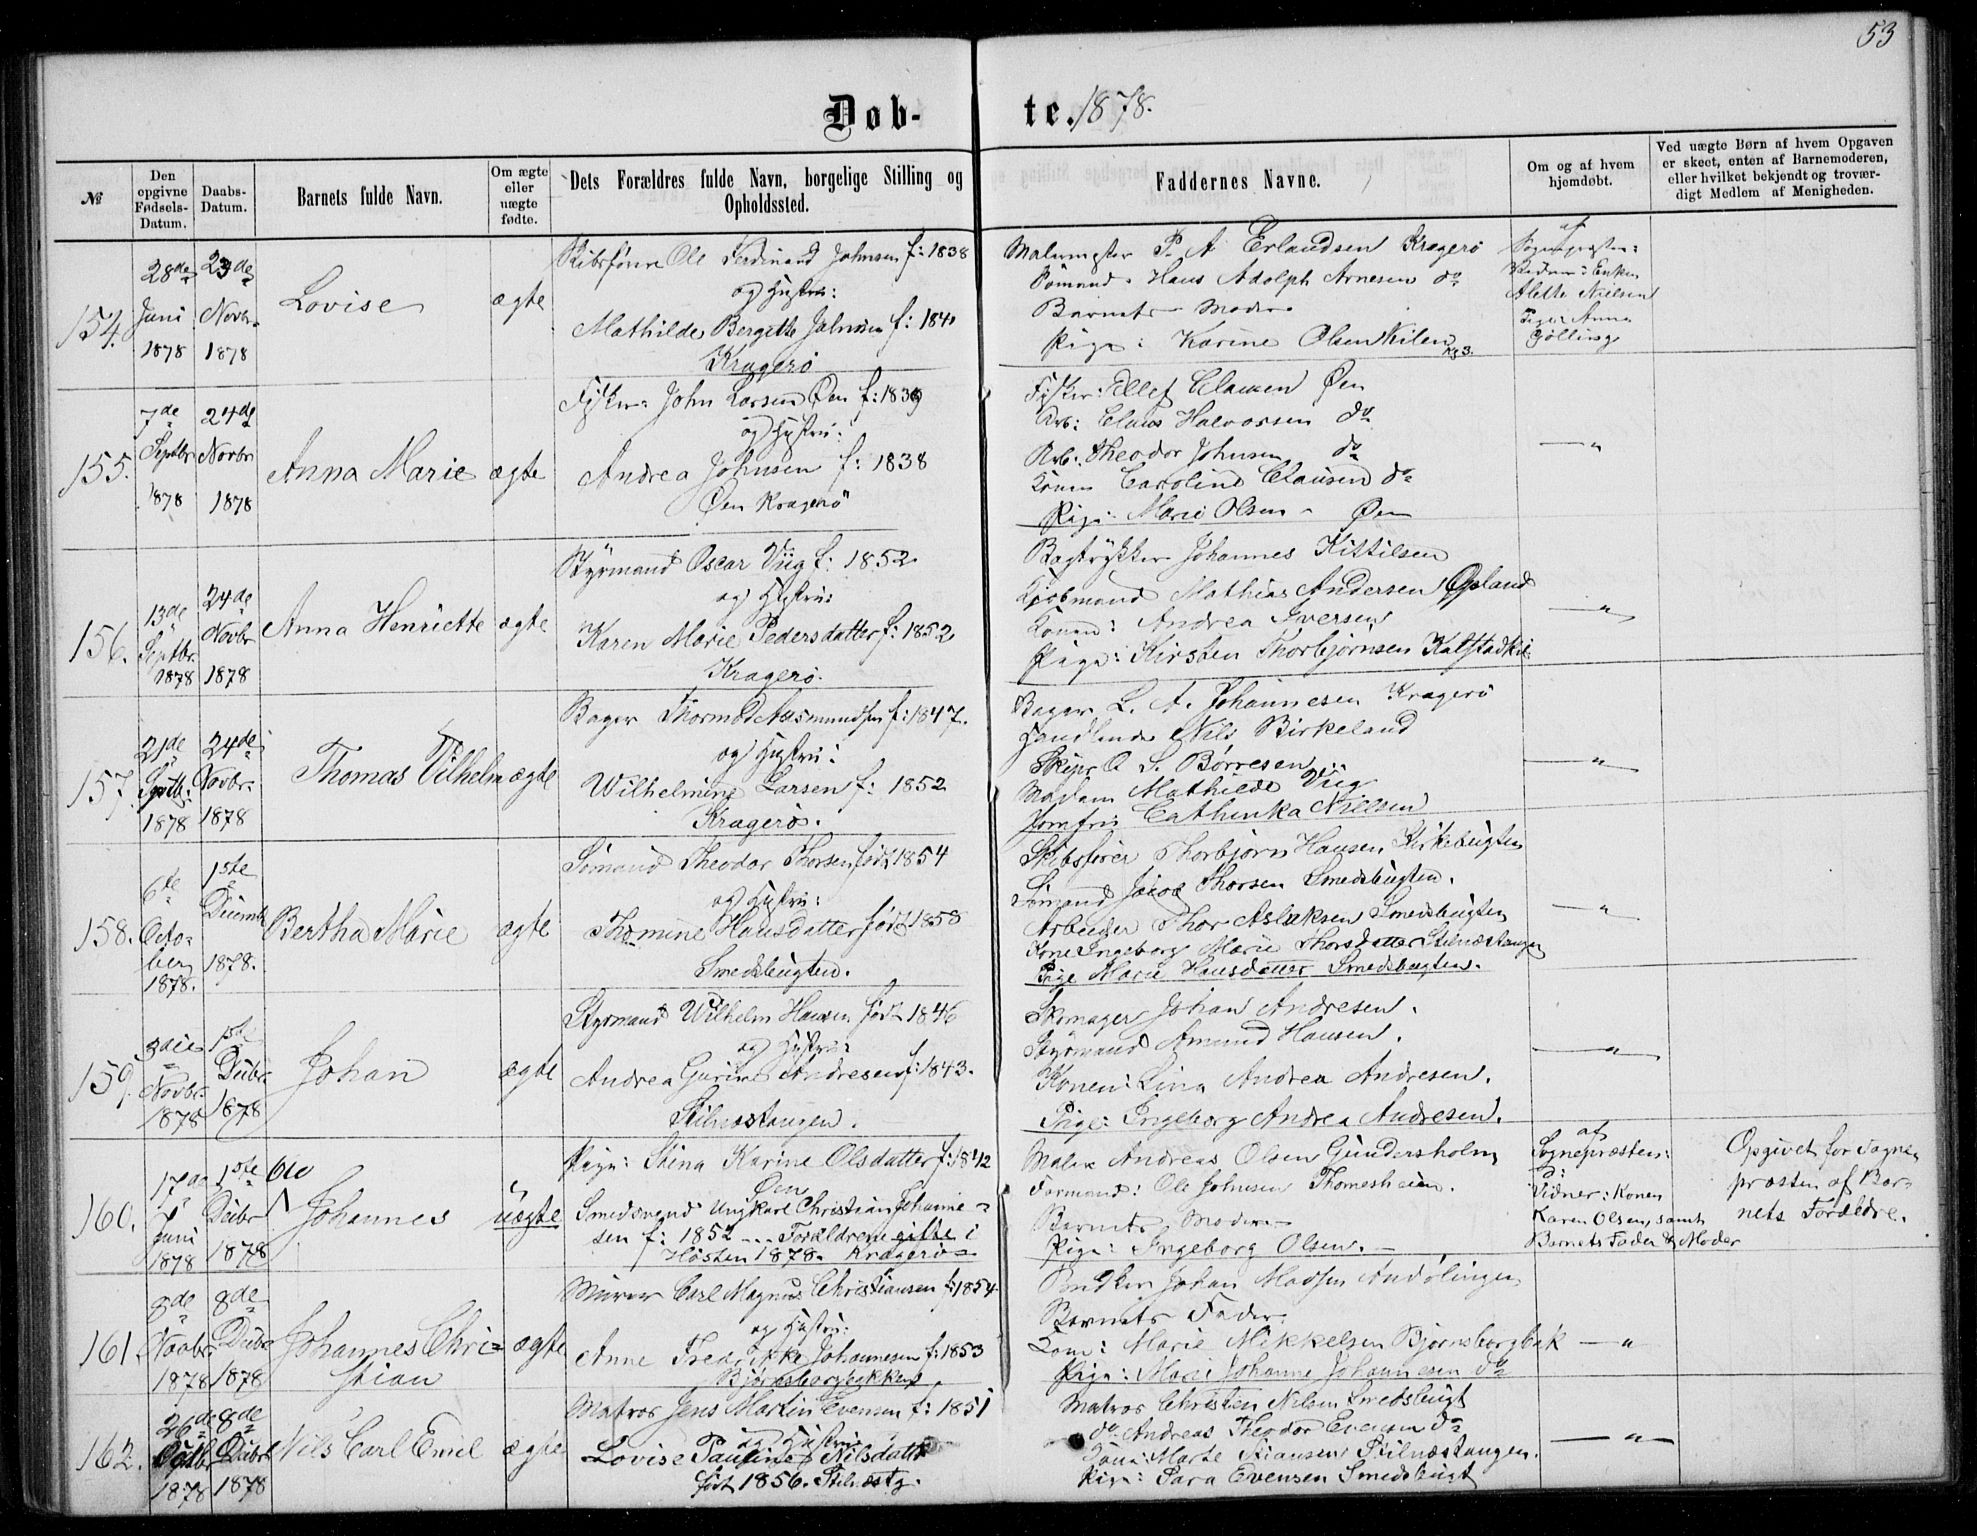 53
Døb- te. 1878.
№
Den opgivne Fødsels-Datum.
Daabs-Datum.
Barnets fulde Navn.
Om ægte eller uægte fødte.
Dets Forældres fulde Navn, borgelige Stilling og Opholdssted.
Faddernes Navne.
Om og af hvem hjemdøbt.
Ved uægte Børn af hvem Opgaven er skeet, enten af Barnemoderen, eller hvilket bekjendt og troværdigt Medlem af Menigheden.
154.
28de Juni 1878
23de Novbr. 1878
Lovise
ægte
Skibsfører Ole Ferdinand Johnsen f: 1838
og Hustru:
Mathilde Bergitte Johnsen f: 184
Kragerö
Malermester P. A Erlandsen Kragerö
Sömand. Hans Adolph Arnesen do
Barnets Moder
Pige: Karine Olsen Kilen
af
Sognepræsten:
Vidner: Enken
Alette Nielsen
Pige: Anna
Gölling
155.
7de Septbr 1878
24de Novbr 1878
Anna Marie
ægte
Fisker: John Larsen Öen f: 1839
og Hustru:
Andrea Johnsen f: 1838
Öen Kragerö
Fisker: Ellef Clausen Öen
Arb: Claus Halvorsen do
Arb: Theodor Johnsen do
Konen Caroline Clausen do
Pige: Marie Olsen - Öen
— " —
156.
13de Septbr. 1878
24de Novbr 1878
Anna Henriette
ægte
Styrmand Oscar Viig f: 1852
og Hustru:
Karen Marie Pedersdatter f: 1852
Kragerö.
Bogtrykker Johannes Kittilsen
Kjöbmand Mathias Andersen Opsland
Konen: Andrea Iversen
Pige: Kirsten Thorbjörnsen Kalstadkil:
— " —
157.
21de Septb: 1878
24de Novbr. 1878
Thomas Vilhelm
ægte
Bager Thormod Aasmundsen f: 1847.
og Hustru:
Wilhelmine Larsen f: 1852
Kragerö.
Bager L. A. Johannesen Kragerö
Handlende Nils Birkeland
Skipr O. S. Börresen
Madam Mathilde Viig
Jomfru Cathinka Nielsen
— " —
158.
6te October 1878.
1ste Decemb 1878.
Bertha Marie
ægte
Sömand Theodor Thorsen født 1854
og Hustru:
Thomine Hansdatter født 1858
Smedsbugten.
Skibsförer Thorbjörn Hansen Kirkebugten
Sömand Jacob Thorsen Smedsbugten.
Arbeider Thor Aslaksen Smedsbugten
Kone Ingeborg Marie Thorsdatter Stilnæstangen
Pige Marie Hansdatter Smedsbugten.
— " —
159.
3die Novbr. 1878
1ste Decbr. 1878
Johan
ægte
Styrmand Wilhelm Hansen født 1846
og Hustru:
Andrea Gurine Andresen f: 1843.
Stilnæstangen.
Skomager Johan Andresen.
Styrmand Amund Hansen.
Konen: Lina Andrea Andresen.
Pige: Ingeborg Andrea Andresen.
— " —
160.
17de Juni 1878
1ste Decbr 1878
Johannes
uægte
Pige: Stina Karine Olsdatter f: 1842
Öen
Smedsvend Ungkarl Christian Johanne-
sen f: 1852 - . . Forældrene gifte i
Hösten 1878. Kragerö
Maler Andreas Olsen Gundersholm
Formand: Ole Johnsen Thomesheien.
Barnets Moder -
Pige: Ingeborg Olsen. -
af
Sognepræsten:
Vidner: Konen
Karen Olsen, samt
Barnets Fader & Moder
Opgivet for Sogne-
præsten af Bar-
nets Forældre.
161.
8de Novbr. 1878
8de Decbr 1878
Johannes Chri=
stian
ægte
Murer Carl Magnus Christiansen f: 1854
og Hustru:
Anne Fredrikke Johannesen f: 1853
Björnsborgbakken
Bödker Johan Madsen Andölingen
Barnets Fader.
Kone: Marie Mikkelsen Björnsborgbak
Pige: Marie Johanne Johannesen do
— " —
162.
26de 1878
8de Decbr 1878
Nils Carl Emil
ægte
Matros Jens Martin Evensen f: 1851
og Hustru
Lovise Pauline Nilsdatter
født 1856. Stilnæstg.
Matros Christen Nilsen Smedsbugt
do Andreas Theodor Evensen do
Kone: Marte Stiansen Stilnæstangen.
Pige: Sara Evensen Smedsbugt
— " —